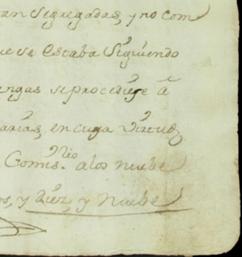 an Segregadas, y no com
ue se Estaba Siguiendo
engas se procediese â
arias, en cuya Virtud,
Comis.nio a los nuebe
os, y Diez y Nuebe